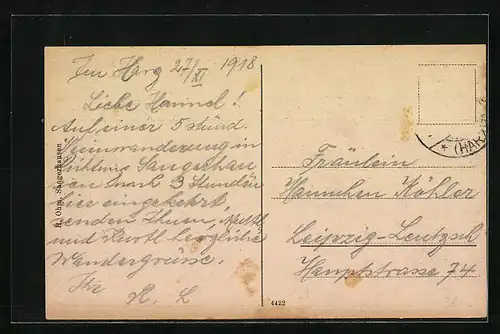 Im Harz 27/XI 1918
Liebe Hannel!
Auf einer 5 stünd.
Heimwanderung in
Richtung Sangerhau
sen nach 3 Stunden
hier eingekehrt
senden Ihnen,
und Kurtl herzliche
Wandergrüsse.
Ihr
R. L.
Fräulein
Hannchen Köhler
Leipzig-Leutzsch
Hauptstrasse 74
(HAR
R. Ohm, Sangerhausen
4422